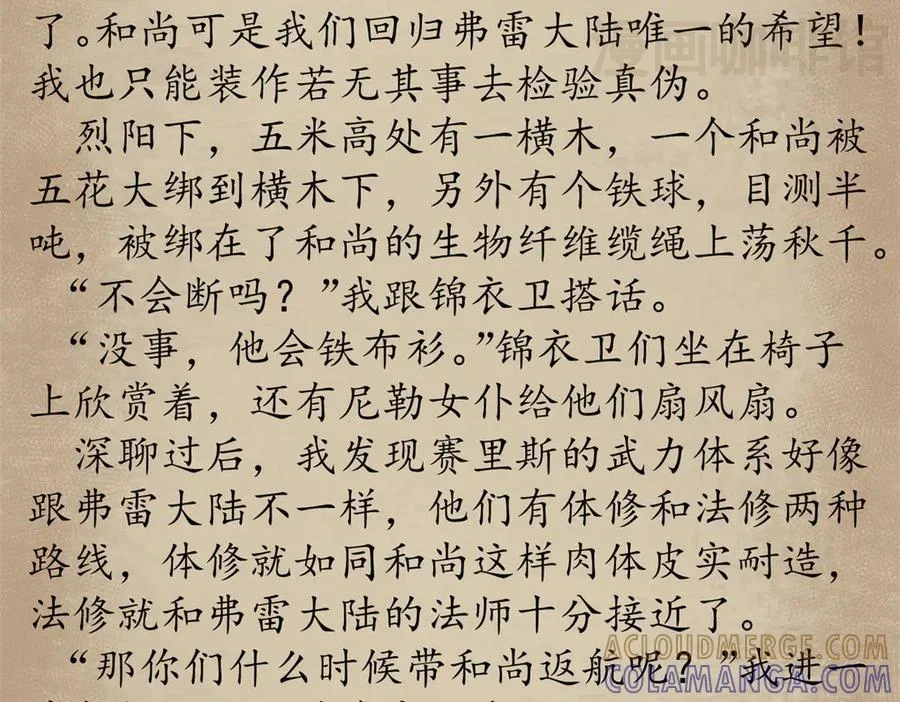 了。和尚可是我们回归弗雷大陆唯一的希望！
我也只能装作若无其事去检验真伪。
烈阳下，五米高处有一横木，一个和尚被
五花大绑到横木下，另外有个铁球，目测半
吨，被绑在了和尚的生物纤维缆绳上荡秋千。
“不会断吗？”我跟锦衣卫搭话。
“没事，他会铁布衫。”锦衣卫们坐在椅子
上欣赏着，还有尼勒女仆给他们扇风扇。
深聊过后，我发现赛里斯的武力体系好像
跟弗雷大陆不一样，他们有体修和法修两种
路线，体修就如同和尚这样肉体皮实耐造，
法修就和弗雷大陆的法师十分接近了。
“那你们什么时候带和尚返航呢？”我进一
漫画咖啡馆
ACLOUDMERGE.COM
COLAMANGA.COM